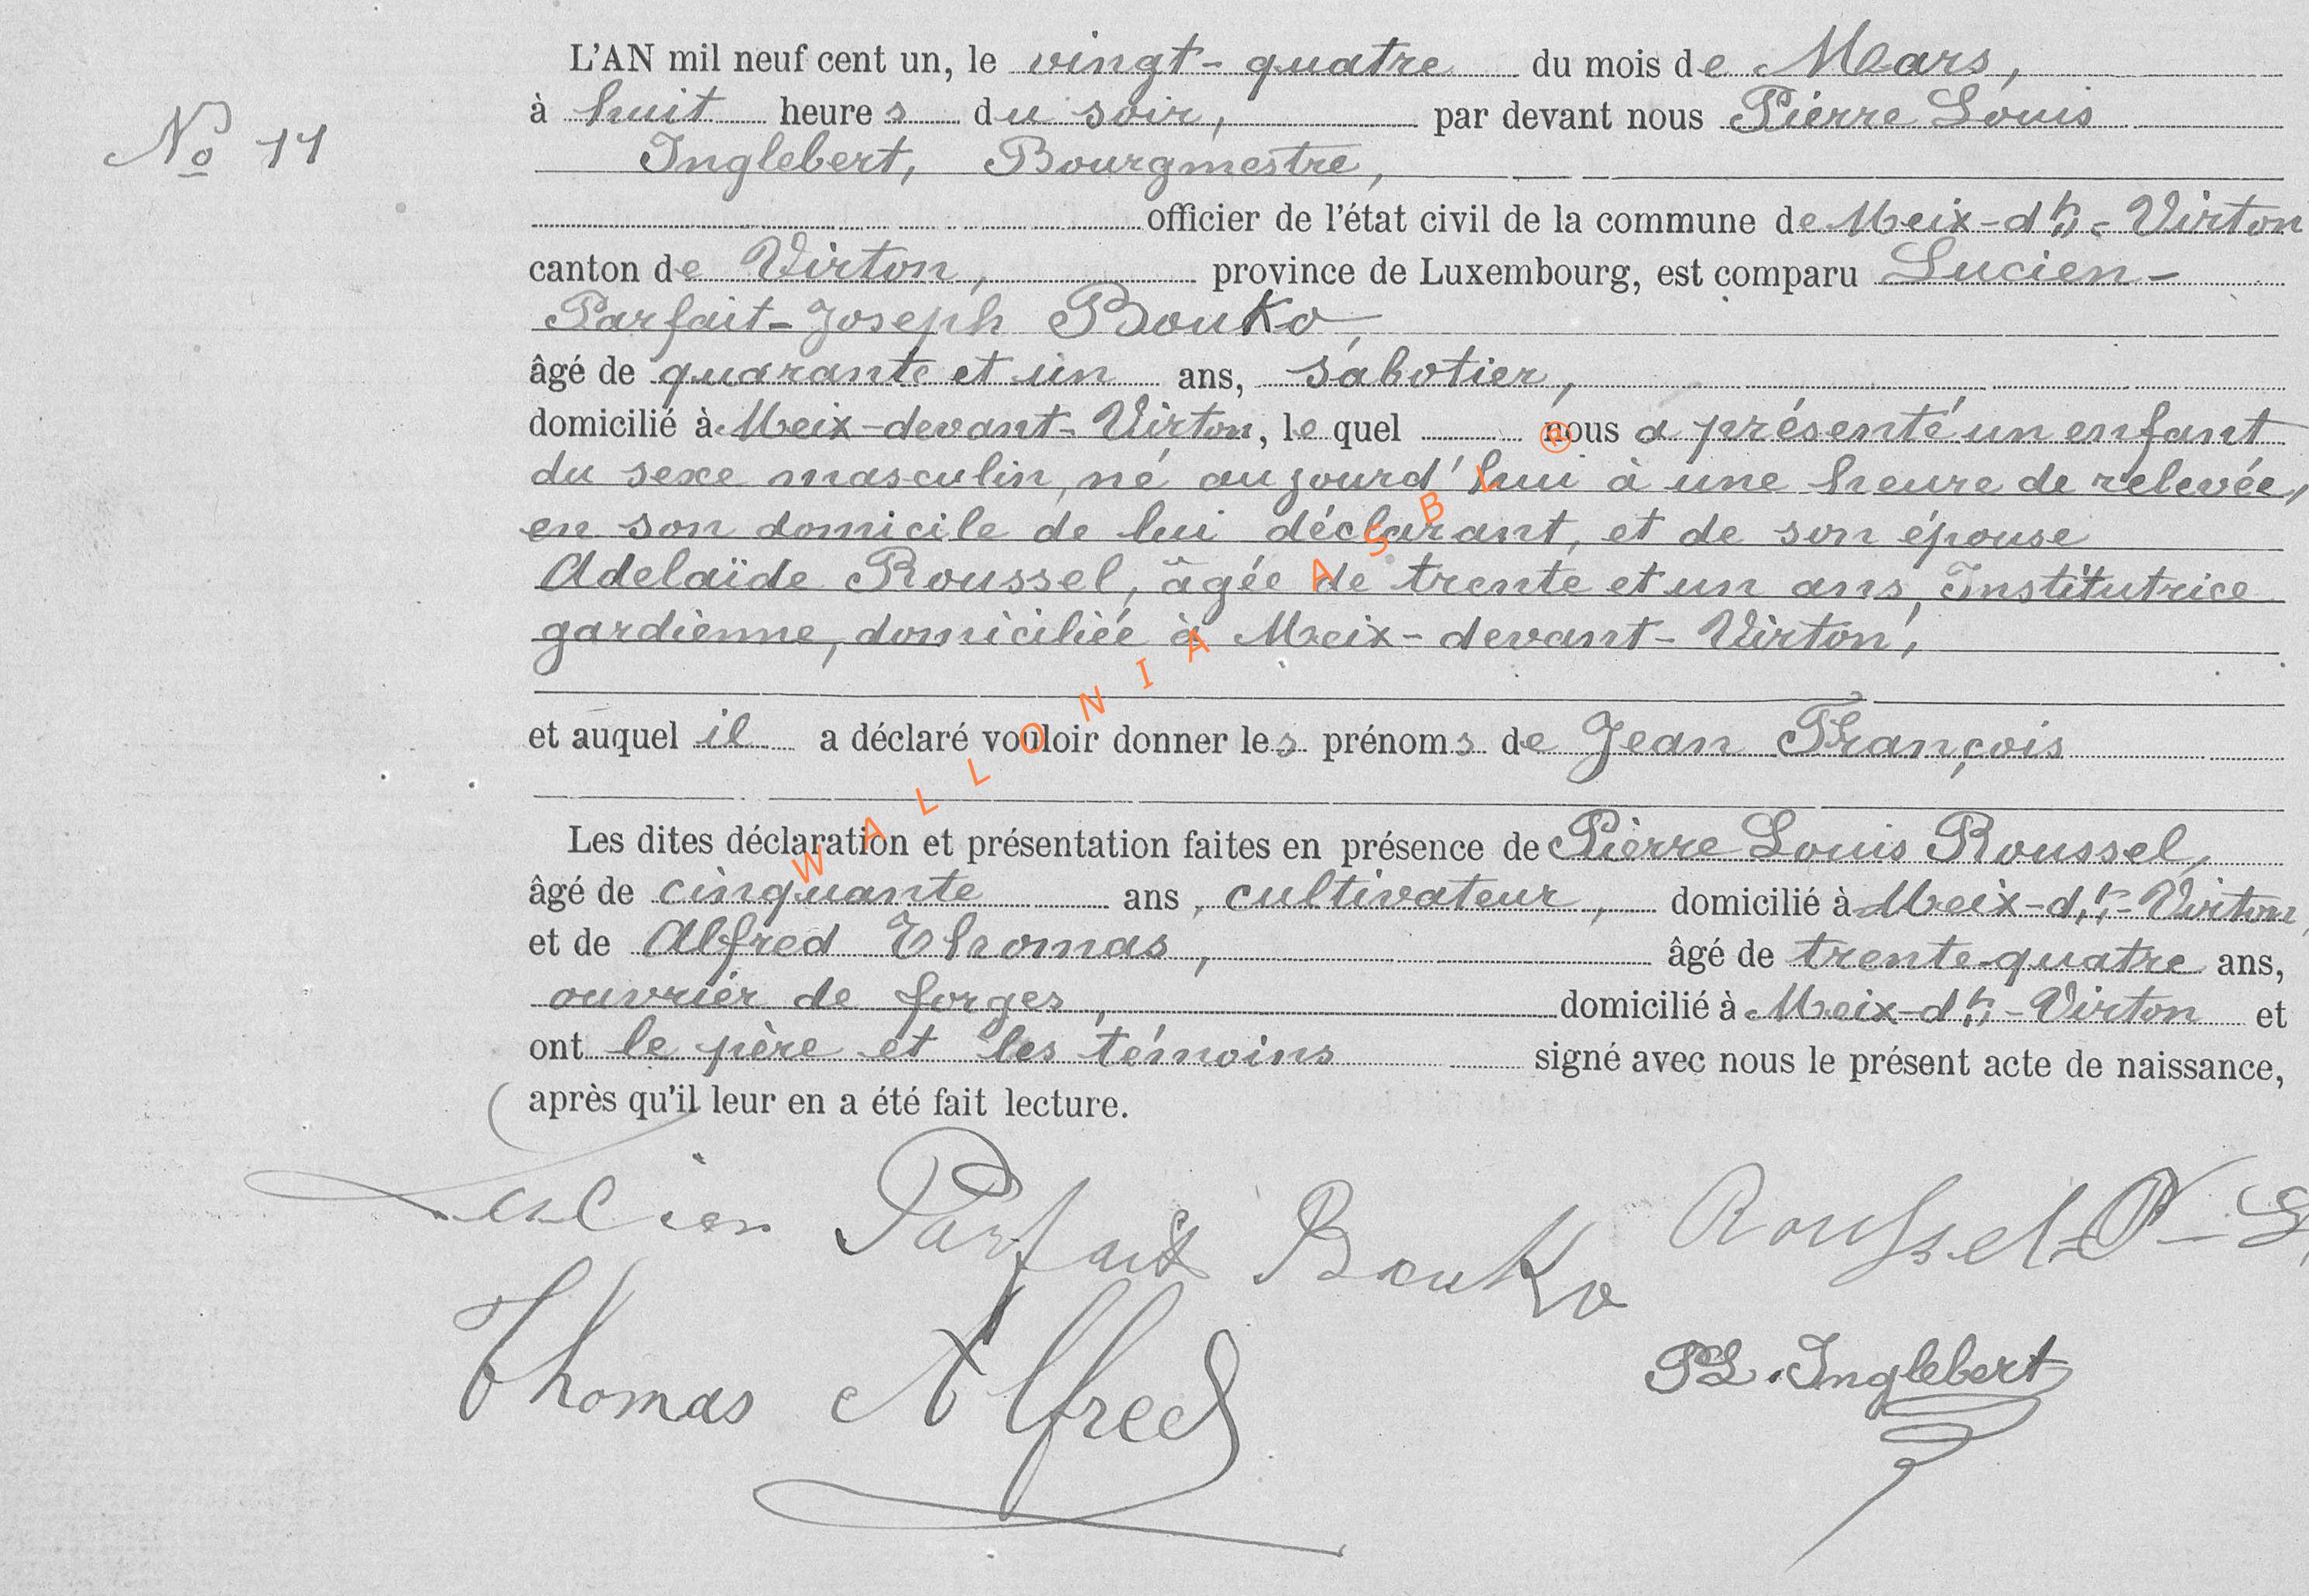 L'AN mil neuf cent un, le vingt-quatre du mois de Mars,
à huit heures du soir, par devant nous Pierre Louis
No 11
Inglebert, Bourgmestre,
officier de l'état civil de la commune de Meix-dt-Virton
canton de Virton, province de Luxembourg, est comparu Lucien-
Parfait-Joseph Bouko,
âgé de quarante et un ans, sabotier,
domicilié à Meix-devant-Virton, le quel nous a présenté un enfant
du sexe masculin, né aujourd'hui à une heure de relevée,
en son domicile de lui déclarant, et de son épouse
Adelaïde Roussel, âgée de trente et un ans, Institutrice
gardienne, domiciliée à Meix-devant-Virton,
et auquel il a déclaré vouloir donner les prénoms de Jean François
Les dites déclaration et présentation faites en présence de Pierre Louis Roussel,
âgé de cinquante ans, cultivateur, domicilié à Meix-dt-Virton,
et de Alfred Thomas, âgé de trente-quatre ans,
ouvrier de forges, domicilié à Meix-dt-Virton et
ont le père et les témoins signé avec nous le présent acte de naissance,
après qu'il leur en a été fait lecture.
Lucien Parfait Bouko Roussel P-L
Thomas Alfred PL. Inglebert
WALLONIA ASBL ®